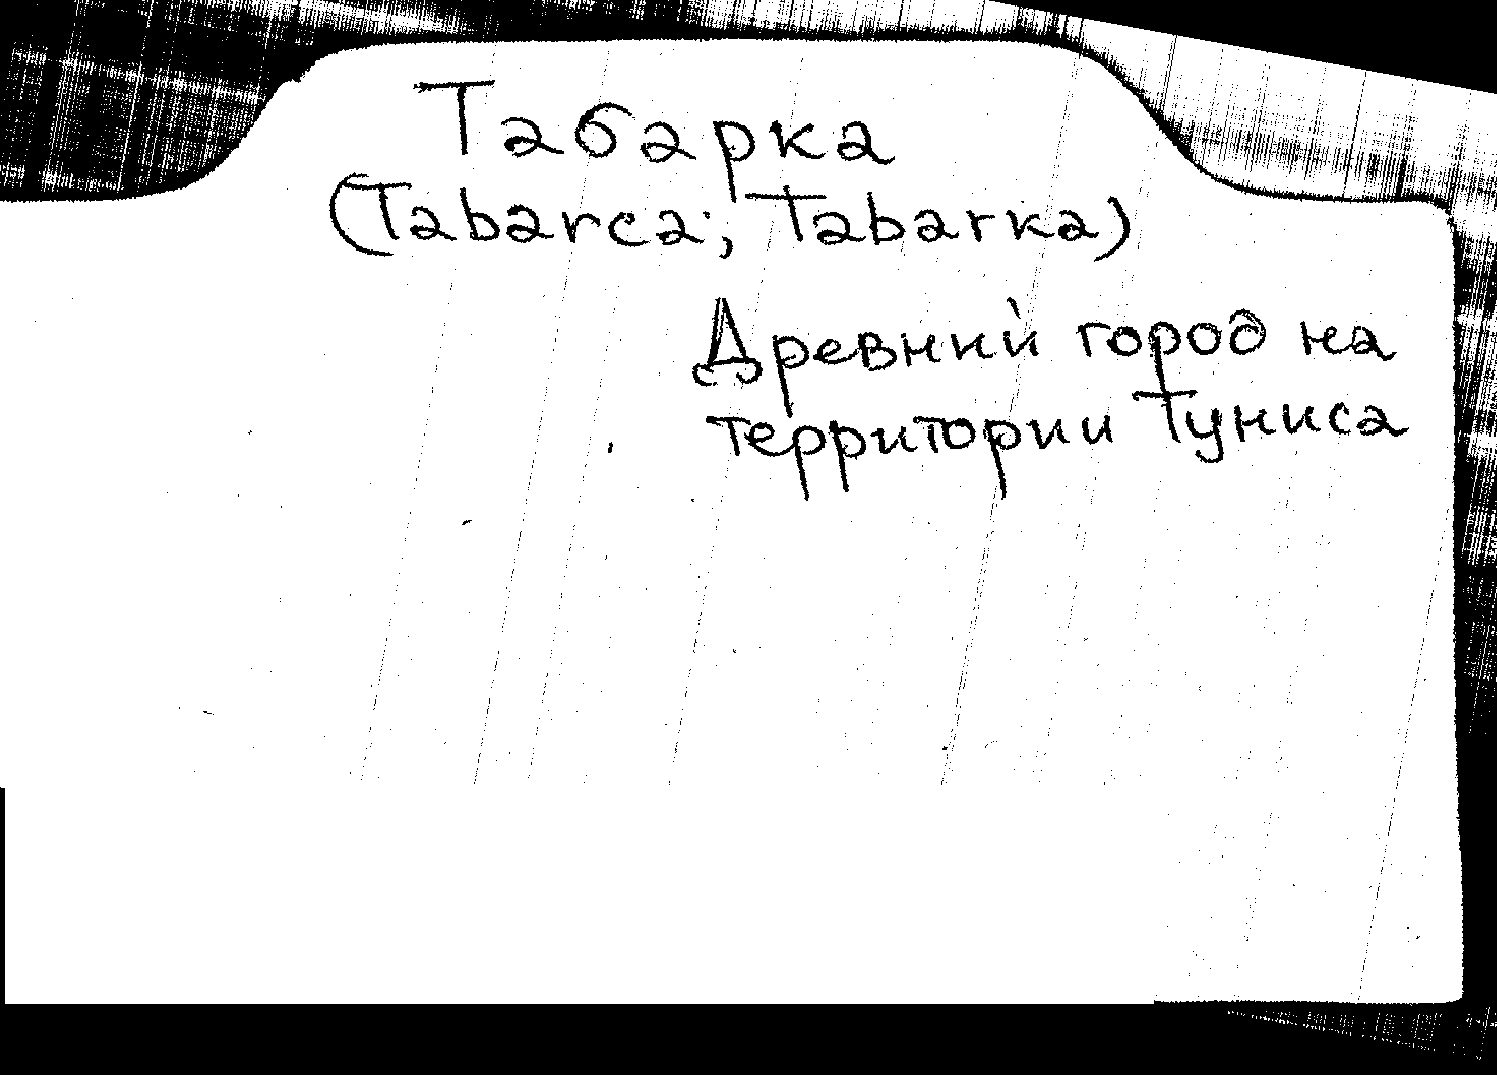 Табарка
(Tabarca; Tabarka)
Древний город на
территории Туниса